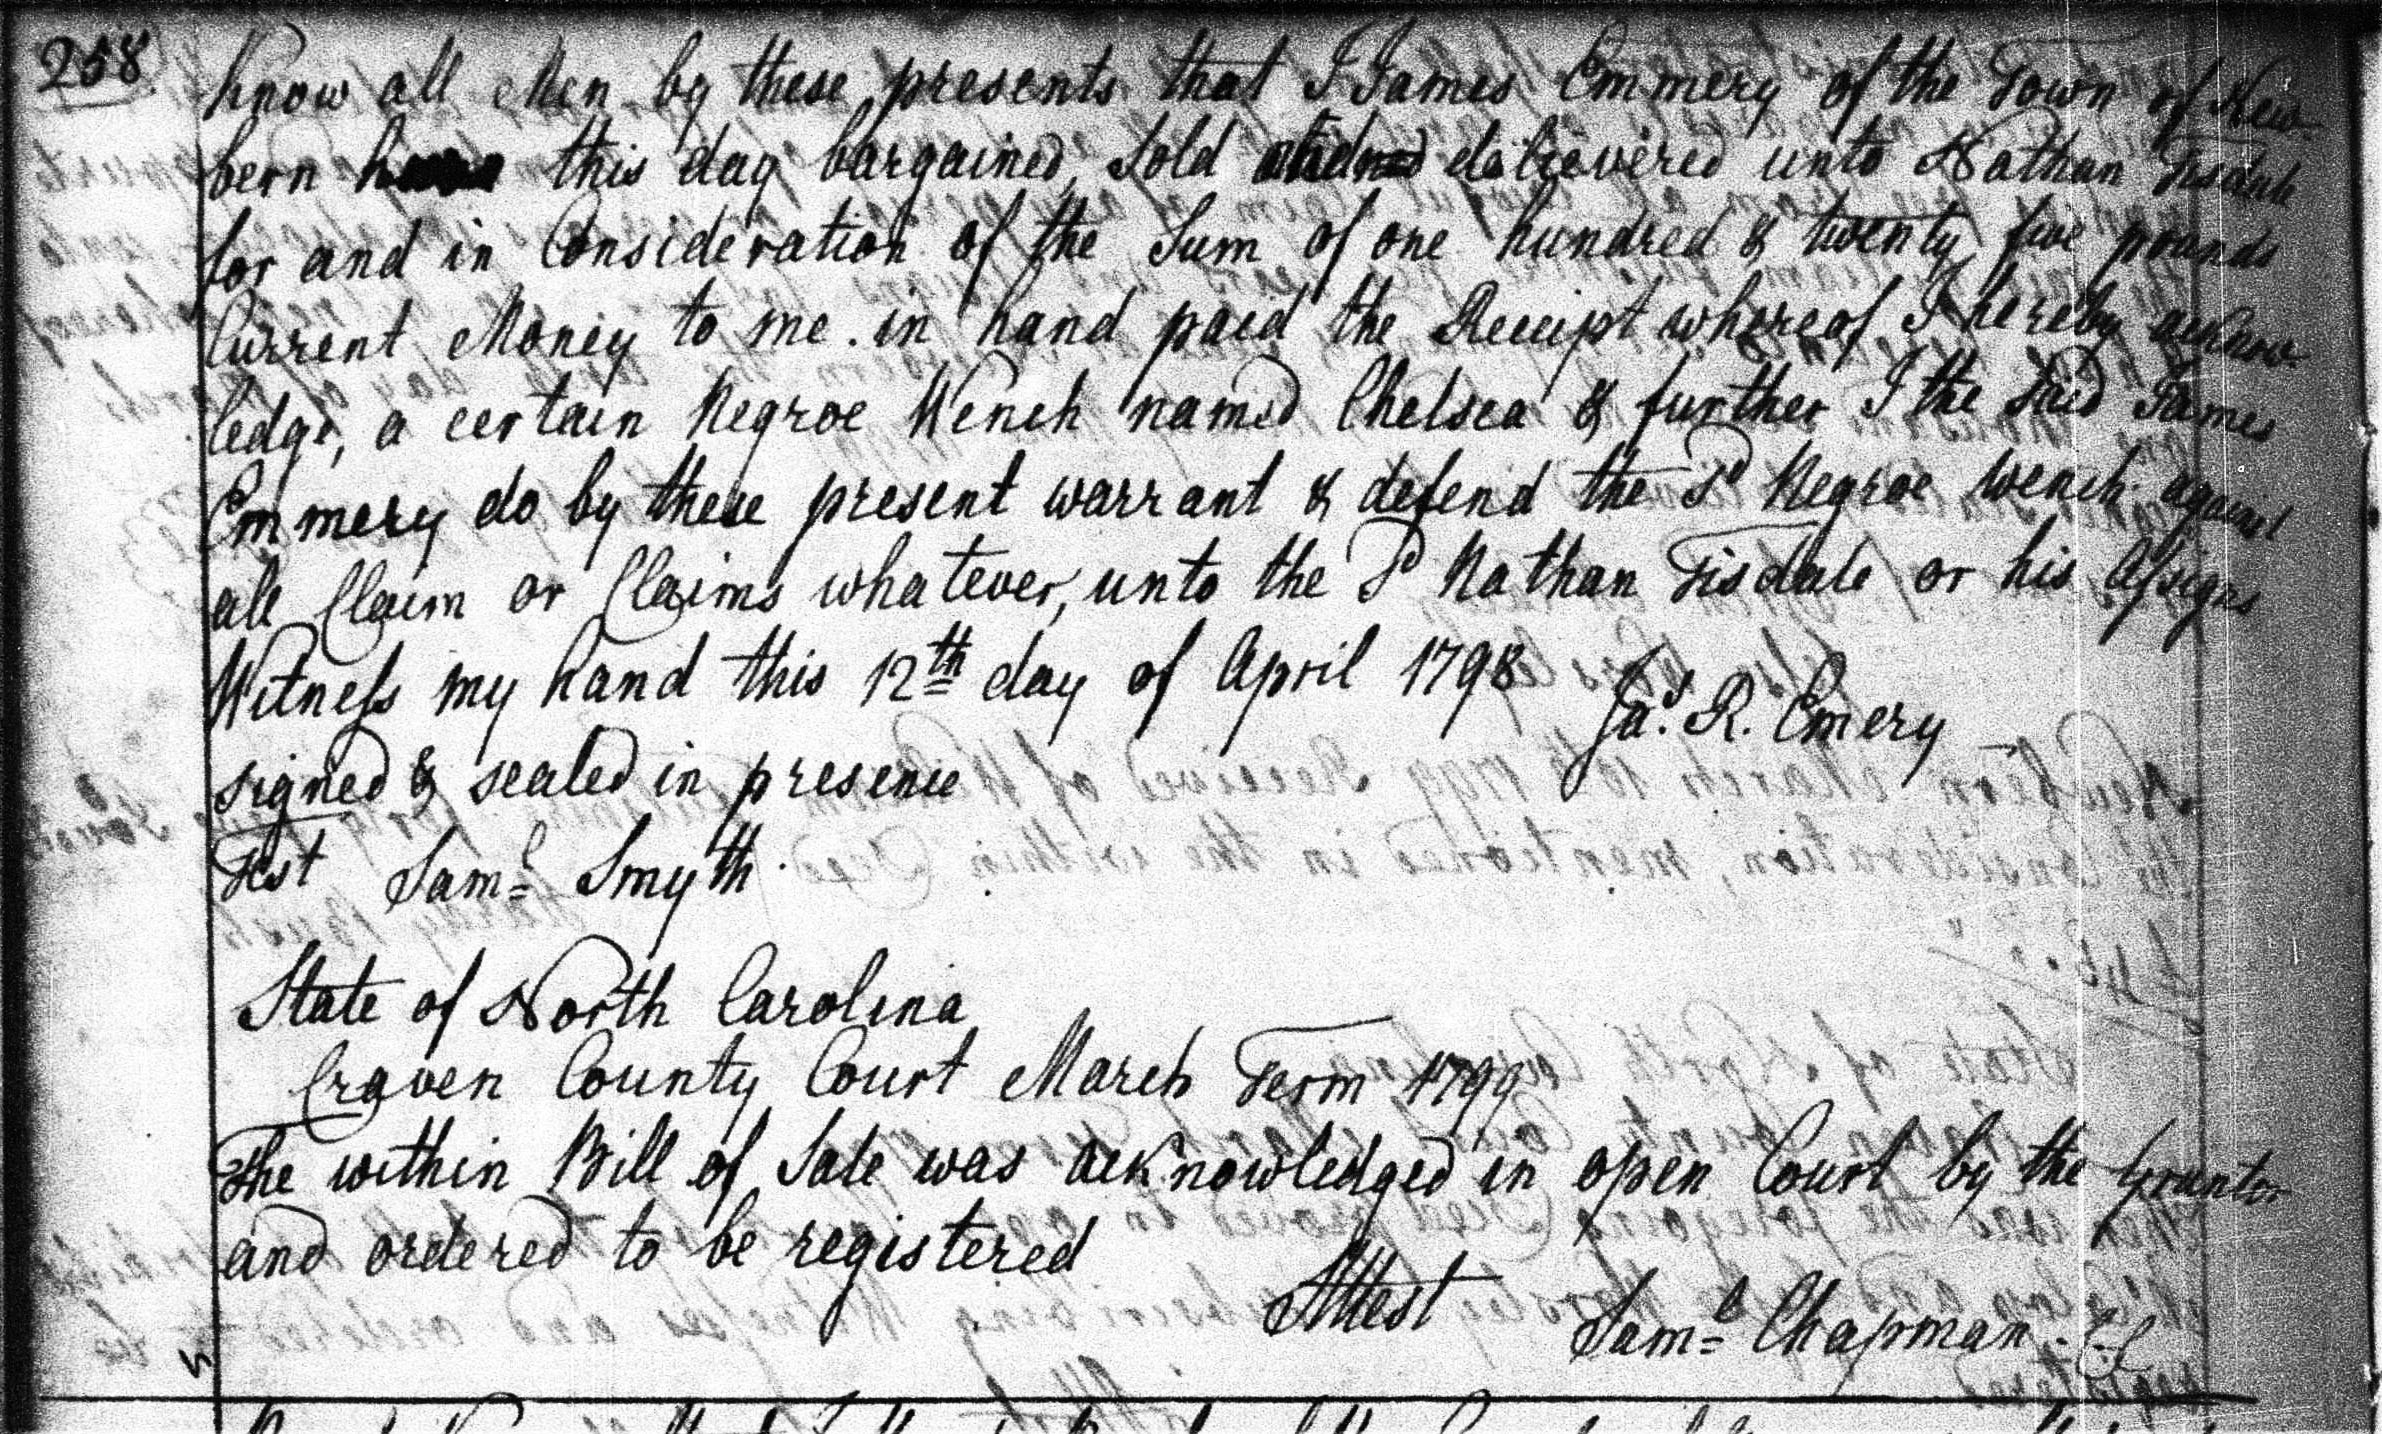 258
Know all Men by these presents that I James Emmery of the Town of New-
bern this day bargained, Sold and delivered unto Nathan Tisdale
for and in Consideration of the Sum of one hundred & twenty five pounds
Current Money to me in hand paid the Receipt whereof I hereby acknow-
ledge, a certain Negroe Wench named Chelsea & further I the said James
Emmery do by these present warrant & defend the Sd Negroe wench against
all Claim or Claims whatever, unto the Sd Nathan Tisdale or his Assigns
Witness my hand this 12th day of April 1798
Jas. R. Emery
signed & sealed in presence
Test Saml Smyth
State of North Carolina
Craven County Court March Term 1799
The within Bill of Sale was acknowledged in open Court by the Grantor
and ordered to be registered
Attest
Saml Chapman CC